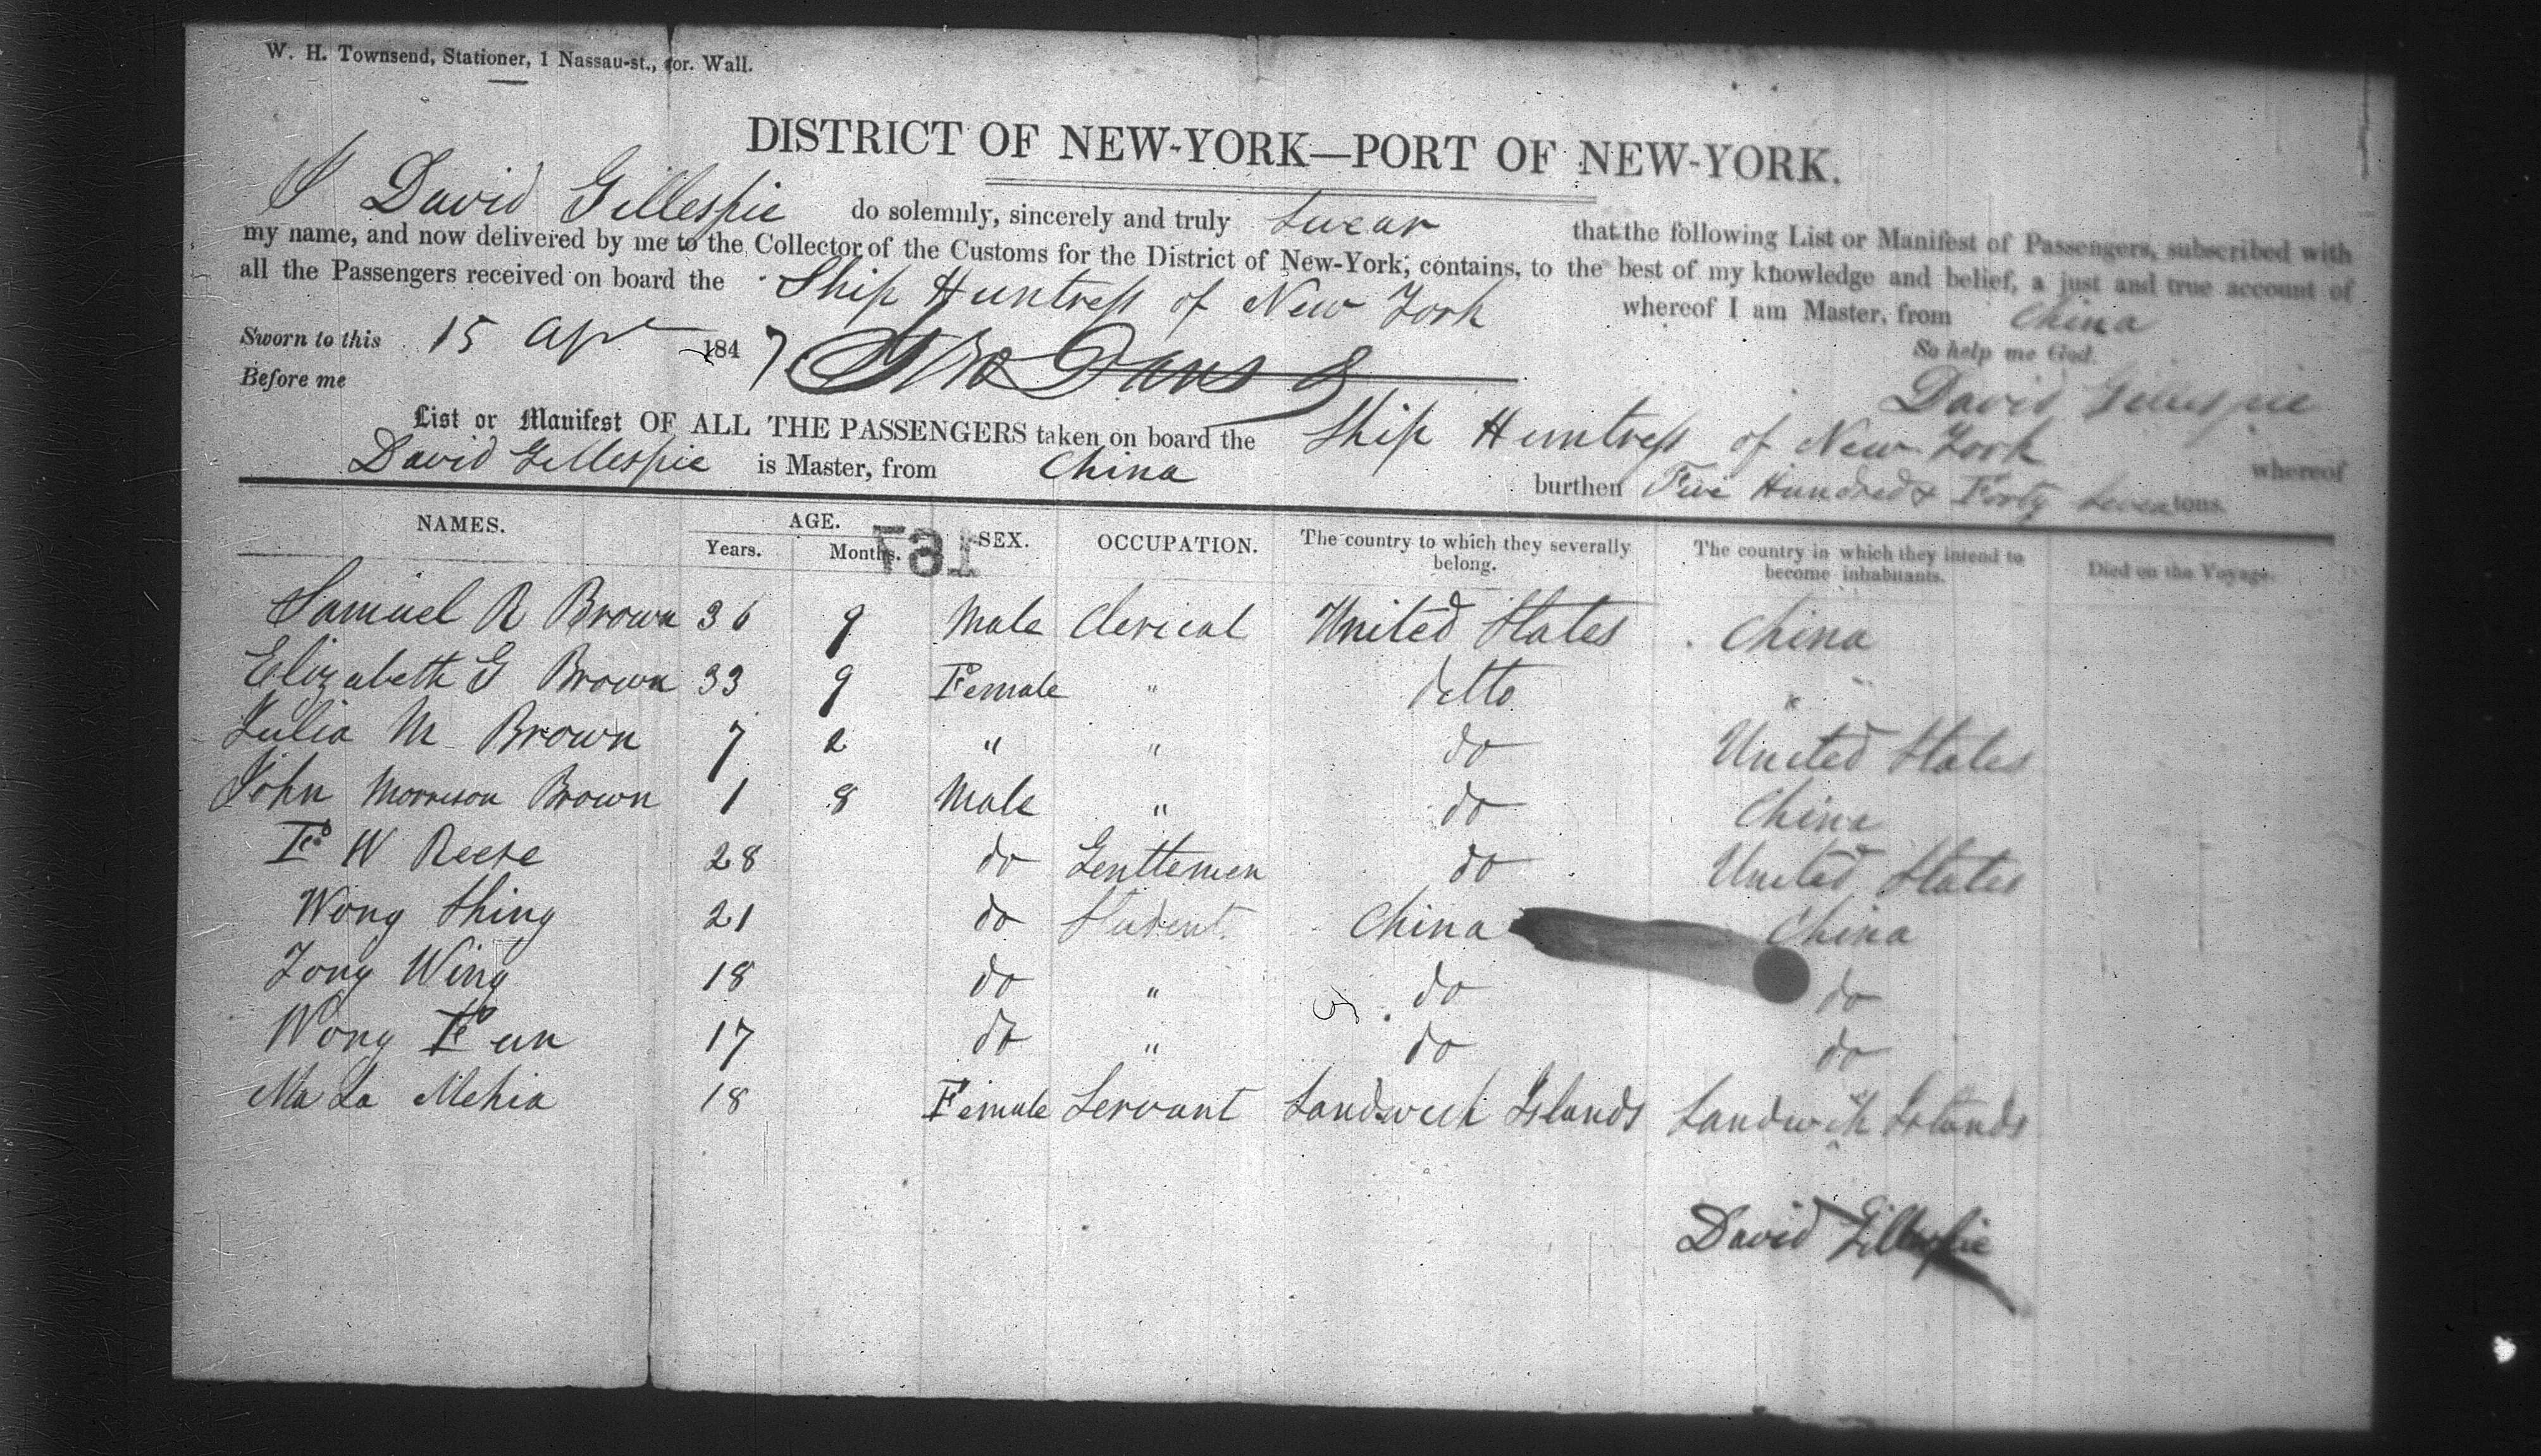 W. H. Townsend, Stationer, 1 Nassau-st., cor. Wall.
DISTRICT OF NEW-YORK—PORT OF NEW-YORK.
I David Gillespie do solemnly, sincerely and truly swear that the following List or Manifest of Passengers, subscribed with
my name, and now delivered by me to the Collector of the Customs for the District of New-York, contains, to the best of my knowledge and belief, a just and true account of
all the Passengers received on board the Ship Huntress of New York whereof I am Master, from China
So help me God.
Sworn to this 15 Apr 1847
Before me
David Gillespie
List or Manifest OF ALL THE PASSENGERS taken on board the Ship Huntress of New York whereof
David Gillespie is Master, from China burthen Five Hundred & Forty Seven tons.
NAMES. AGE. SEX. OCCUPATION. The country to which they severally belong. The country in which they intend to become inhabitants. Died on the Voyage.
Years. Months.
Samuel R Brown 36 9 Male Clerical United States China
Elizabeth G Brown 33 9 Female " ditto "
Julia M Brown 7 2 " " do United States
John Morrison Brown 1 8 Male " do China
F W Reese 28 do Gentlemen do United States
Wong Shing 21 do Student China China
Yong Wing 18 do " do do
Wong Fun 17 do " do do
Ma La Mehia 18 Female Servant Sandwich Islands Sandwich Islands
David Gillespie